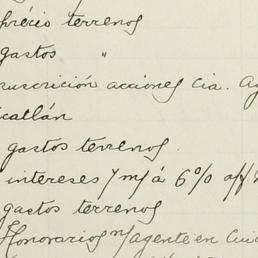 précio terrenos
gastos "
suscrición acciones Cia. Ag
callán
gastos terrenos.
intereses 7 m/ á 6% o/f
gastos terrenos
Honorarios n/agente en